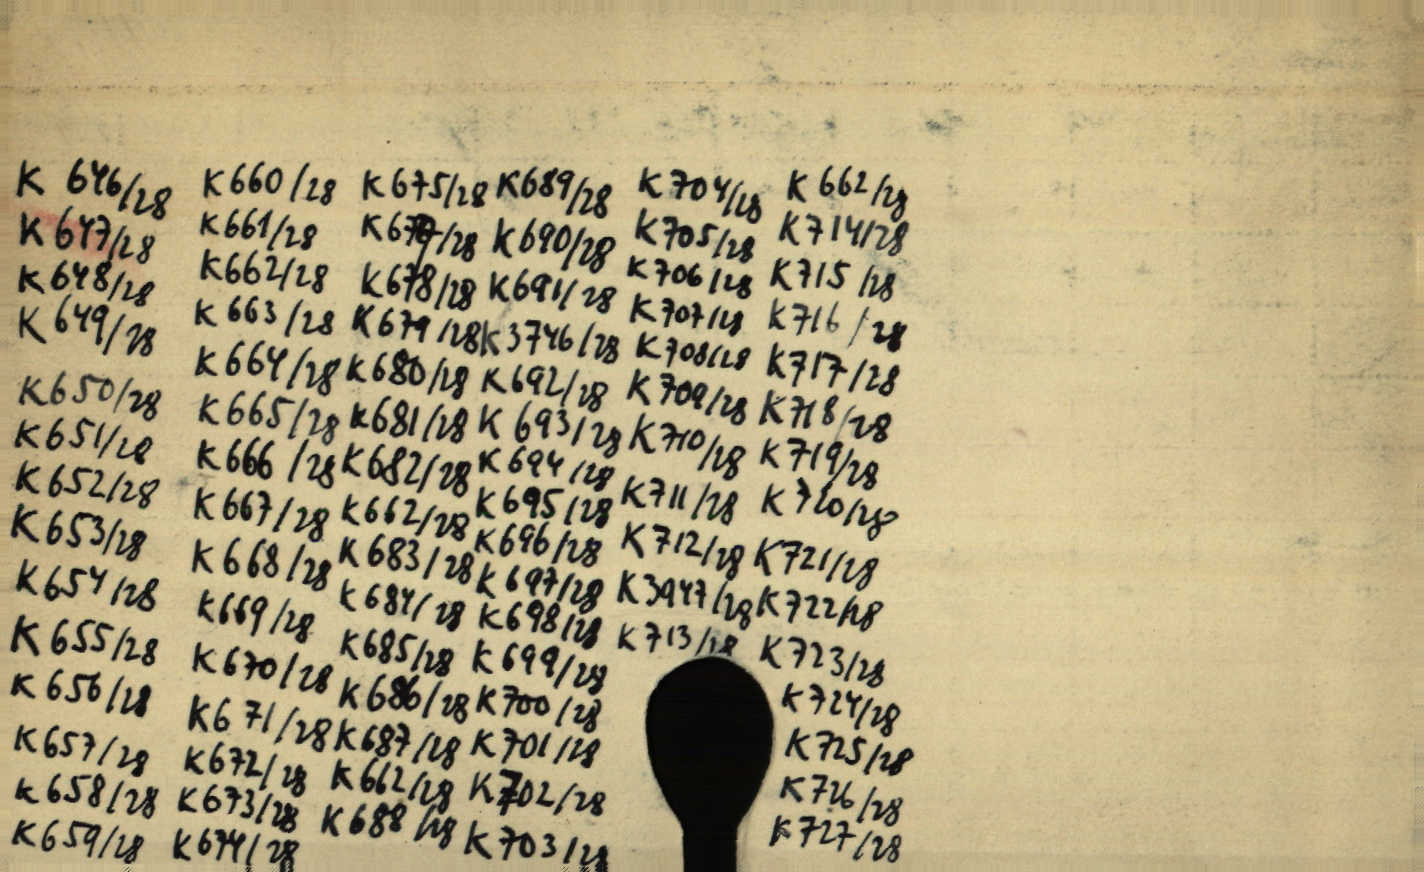 K 646/28
K 647/28
K 648/28
K 649/28
K 650/28
K 651/28
K 652/28
K 653/28
K 654/28
K 655/28
K 656/28
K 657/28
K 658/28
K 659/28
K 660/28
K 661/28
K 662/28
K 663/28
K 664/28
K 665/28
K 666/28
K 667/28
K 668/28
K 669/28
K 670/28
K 671/28
K 672/28
K 673/28
K 674/28
K 675/28
K 677/28
K 678/28
K 679/28
K 680/28
K 681/28
K 682/28
K 662/28
K 683/28
K 684/28
K 685/28
K 686/28
K 687/28
K 662/28
K 688/28
K 689/28
K 690/28
K 691/28
K 3746/28
K 692/28
K 693/28
K 694/28
K 695/28
K 696/28
K 697/28
K 698/28
K 699/28
K 700/28
K 701/28
K 702/28
K 703/28
K 704/28
K 705/28
K 706/28
K 707/28
K 708/28
K 709/28
K 710/28
K 711/28
K 712/28
K 3947/28
K 713/28
K 662/28
K 714/28
K 715/28
K 716/28
K 717/28
K 718/28
K 719/28
K 720/28
K 721/28
K 722/28
K 723/28
K 724/28
K 725/28
K 726/28
K 727/28